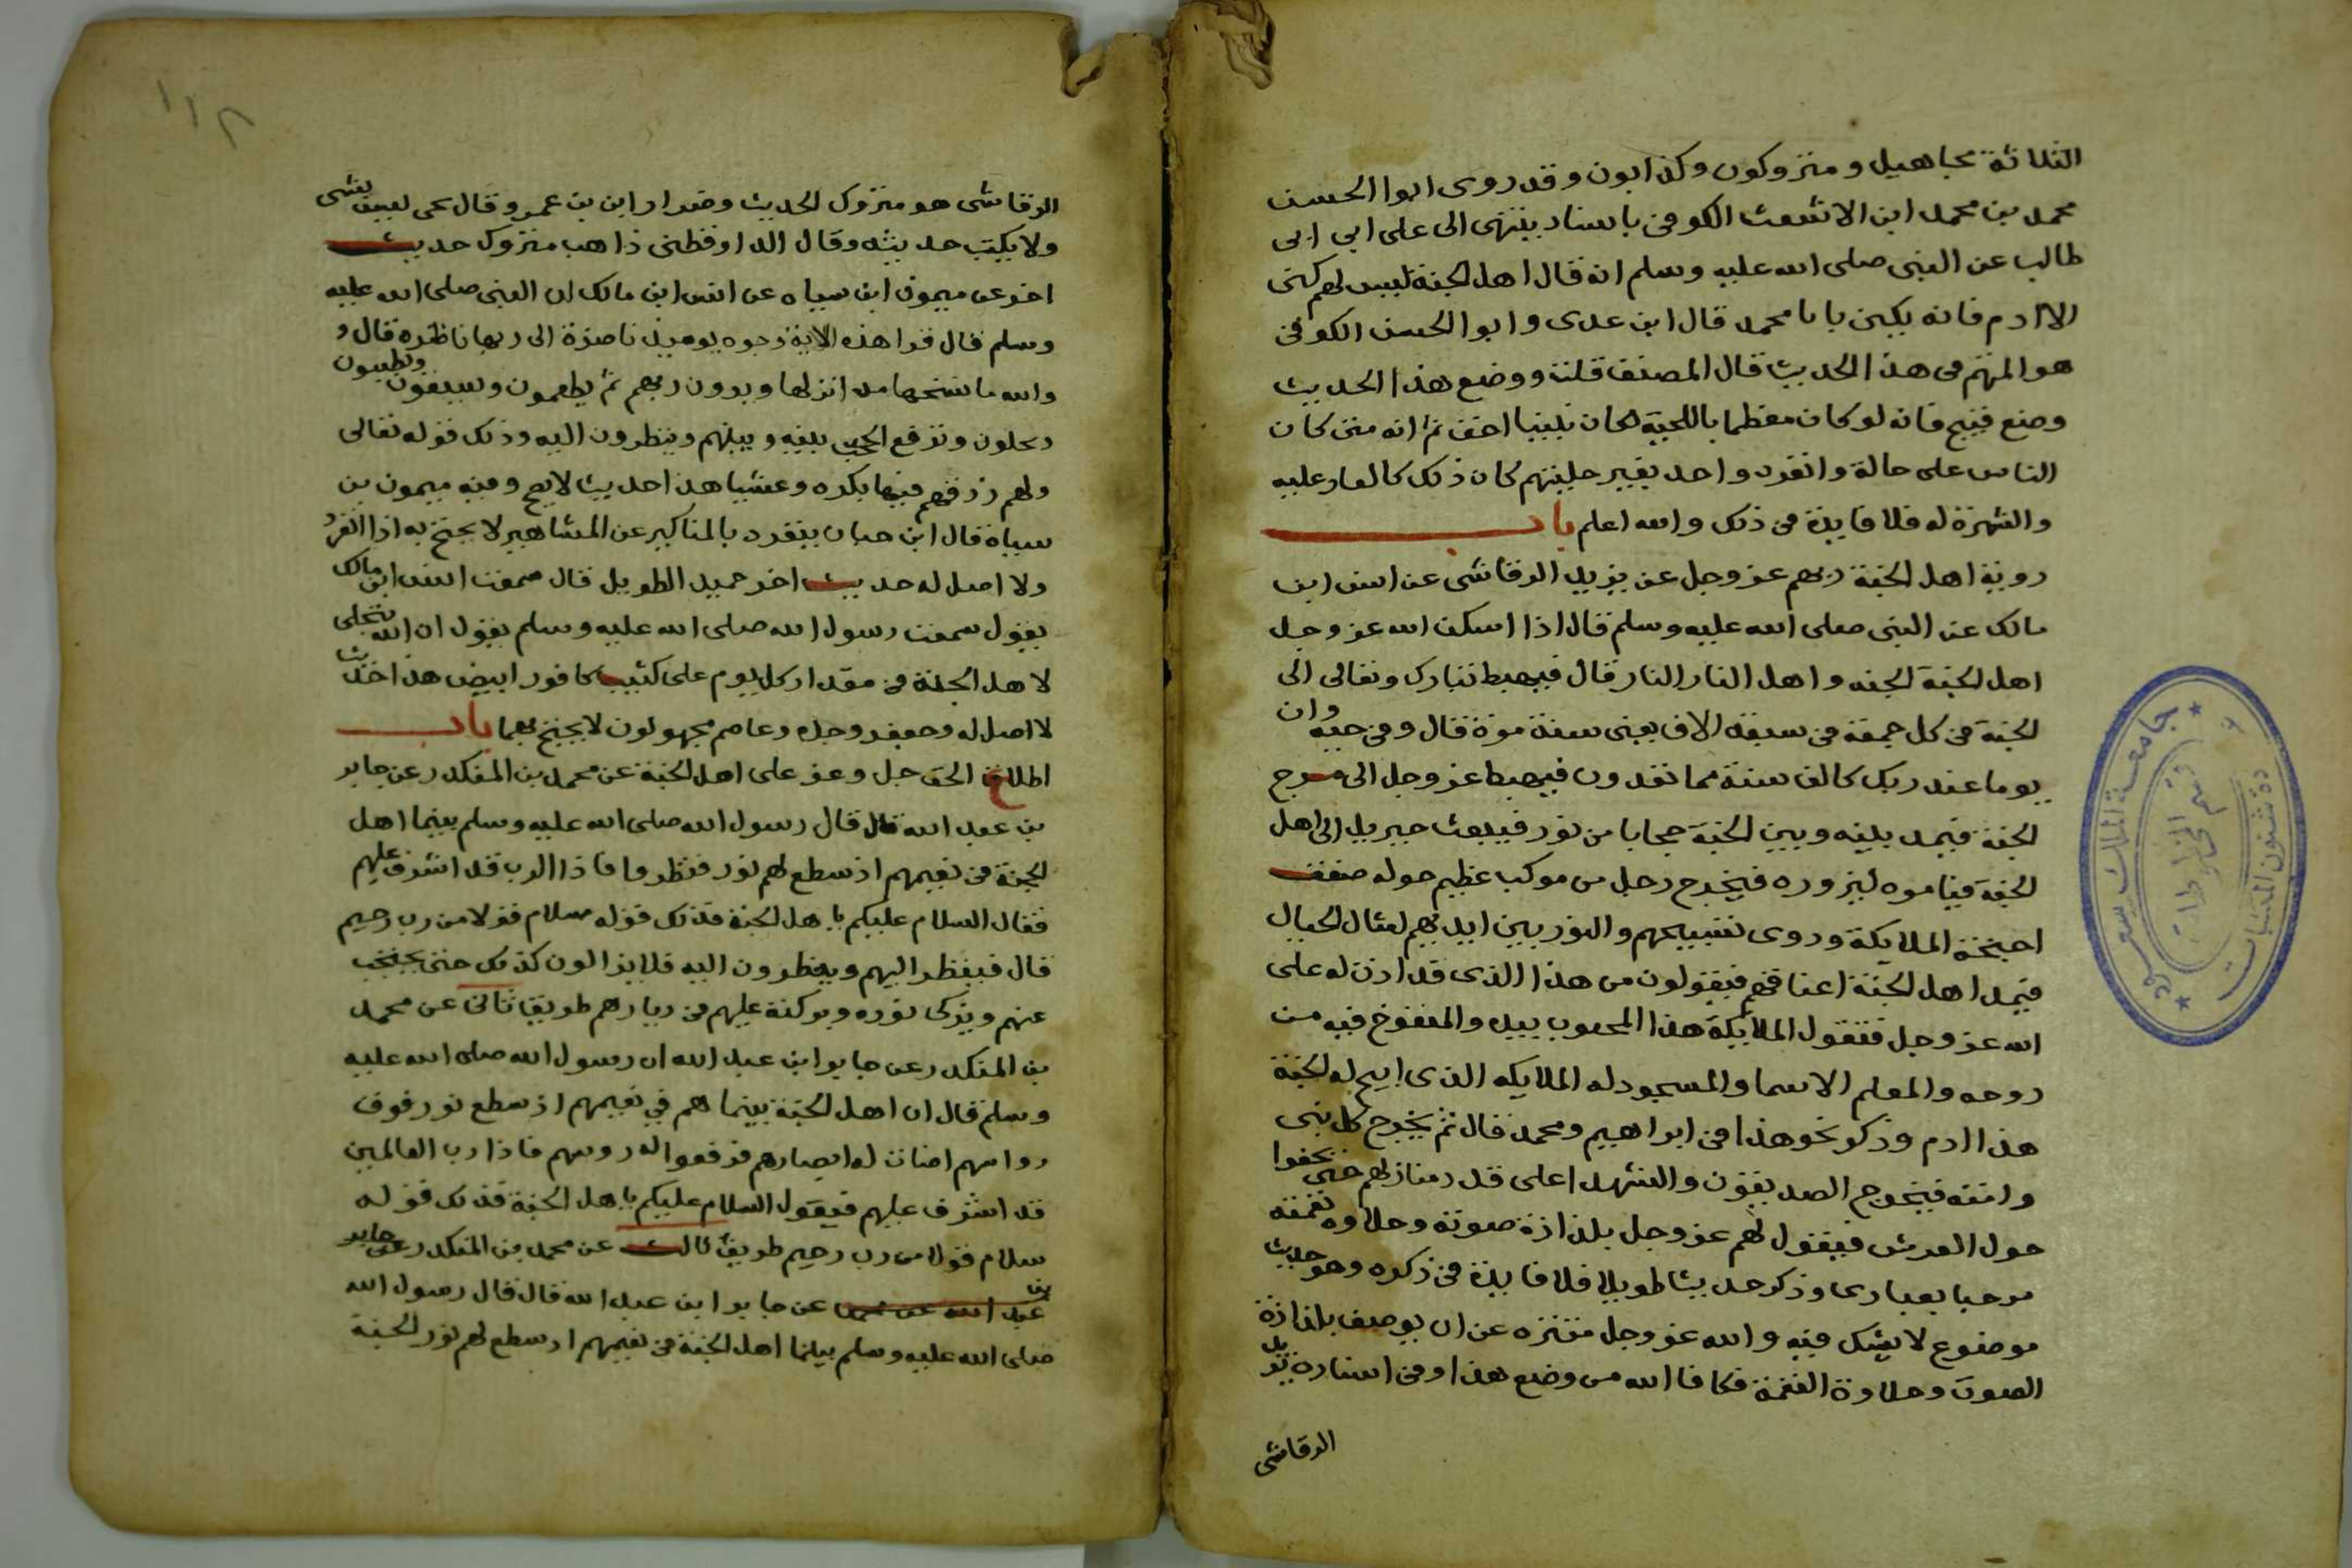 الثلاثة مجاهيل ومتروكون وكذابون وقد روى ابوا الحسن
محمد بن محمد ابن الاشعث الكوفى باسناد ينتهى الى على ابي ابى
طالب عن النبى صلى الله عليه وسلم انه قال اهل الجنة ليس لهم كنى
الا ادم فانه يكنى بابا محمد قال ابن عدى وابوا الحسن الكوفى
هو المتهم فى هذا الحديث قال المصنف قلت ووضع هذا الحديث
وضع قبيح فانه لو كان معظما باللحية لكان نبينا احق ثم انه متى كان
الناس على حالة وانفرد واحد بغير حليتهم كان ذلك كالعار عليه
والشهرة له فلا فايدة فى ذلك والله اعلم باب
روية اهل الجنة ربهم عز وجل عن يزيد الرقاشى عن انس ابن
مالك عن النبى صلى الله عليه وسلم قال اذا اسكن الله عز وجل
اهل الجنة الجنه واهل النار النار قال فيهبط تبارك وتعالى الى
الجنة فى كل جمعة فى سبعة الاف يعنى سنة مرة قال وفى حيه وان
يوما عند ربك كالف سنة مما تعدون فيهبط عز وجل الى مرج
الجنة فيمد بينه وبين الجنة حجابا من نور فيبعث جبريل الى اهل
الجنة فيامره ليزوره فيخرج رجل من موكب عظيم حوله صفق
اجنحة الملايكة ودوى تسبيحهم والنور بين ايديهم امثال الجبال
فيمد اهل الجنة اعناقهم فيقولون من هذا الذى قد اذن له على
الله عز وجل فتقول الملايكة هذا المجبول بيده والمنفوخ فيه من
روحه والمعلم الاسما والمسجود له الملايكه الذى ابيح له الجنة
هذا ادم وذكر نحو هذا فى ابراهيم ومحمد قال ثم يخرج كل نبى
وامته فيخرج الصديقون والشهدا على قدر منازلهم حتى يحفوا
حول العرش فيقول لهم عز وجل بلذاذة صوته وحلاوة نغمته
مرحبا بعبادى وذكر حديثا طويلا فلا فايدة فى ذكره وهو حديث
موضوع لا يشك فيه والله عز وجل متنزه عن ان يوصف بلذاذة
الصوت وحلاوة النغمة فكافا الله من وضع هذا وفى اسناده يزيد
الرقاشى
١١٢
الرقاشى هو متروك الحديث وضرار ابن بن عمرو قال يحى ليس بشى
ولا يكتب حديثه وقال الدارقطنى ذاهب متروك حديث
اخر عن ميمون ابن سياه عن انس ابن مالك ان النبى صلى الله عليه
وسلم قال قرا هذه الاية وجوه يوميذ ناضرة الى ربها ناظره قال و
والله ما نسخها مد انزلها ويرون ربهم ثم يطعمون ويسقون ويطيبون
ويحلون وترفع الحجب بينه وبينهم وينظرون اليه وذلك قوله تعالى
ولهم رزقهم فيها بكره وعشيا هذا حديث لا يصح وفيه ميمون بن
سياه قال ابن حبان ينفرد بالمناكير عن المشاهير لا يحتج به اذا انفرد
ولا اصل له حديث اخر حميد الطويل قال سمعت انس ابن مالك
يقول سمعت رسول الله صلى الله عليه وسلم يقول ان الله يتجلى
لاهل الجنة فى مقدار كل يوم على كثيب كافور ابيض هذا حديث
لا اصل له وجعفر وجده وعاصم مجهولون لا يحتج بهما باب
اطلاع الحق جل وعز على اهل الجنة عن محمد بن المنكدر عن جابر
بن عبد الله قال قال رسول الله صلى الله عليه وسلم بينما اهل
الجنة فى نعيمهم اذ سطع لهم نور فنظروا فاذا الرب قد اشرف عليهم
فقال السلام عليكم يا هل الجنة فذلك قوله سلام قولا من رب رحيم
قال فينظر اليهم وينظرون اليه فلا يزالون كذلك حتى يحتجب
عنهم ويزكى نوره وبركته عليهم فى ديارهم طريق ثانى عن محمد
بن المنكدر عن جابر ابن عبد الله ان رسول الله صلى الله عليه
وسلم قال ان اهل الجنة بينما هم في نعيمهم اذ سطع نور فوق
رواسهم اضات له ابصارهم فرفعوا له روسهم فاذا رب العالمين
قد اشرف عليهم فيقول السلام عليكم يا هل الجنة فذلك قوله
سلام قولا من رب رحيم طريق ثالث عن محمد بن المنكدر عن جابر
بن عبد الله عن محمد عن جابر ابن عبد الله قال قال رسول الله
صلى الله عليه وسلم بينما اهل الجنة فى نعيمهم اد سطع لهم نور الجنة
جامعة الملك سعود